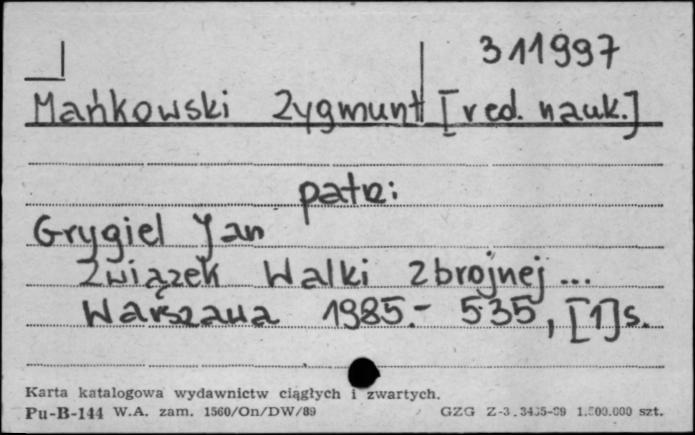 311997
Mańkowski Zygmunt [red. nauk.]
patrz:
Grygiel Jan
Związek Walki Zbrojnej ...
Warszawa 1985.- 535, [1]s.
Karta katalogowa wydawnictw ciągłych i zwartych.
Pu-B-144 W.A. zam. 1560/On/DW/89 GZG Z-3. 1.500.000 szt.